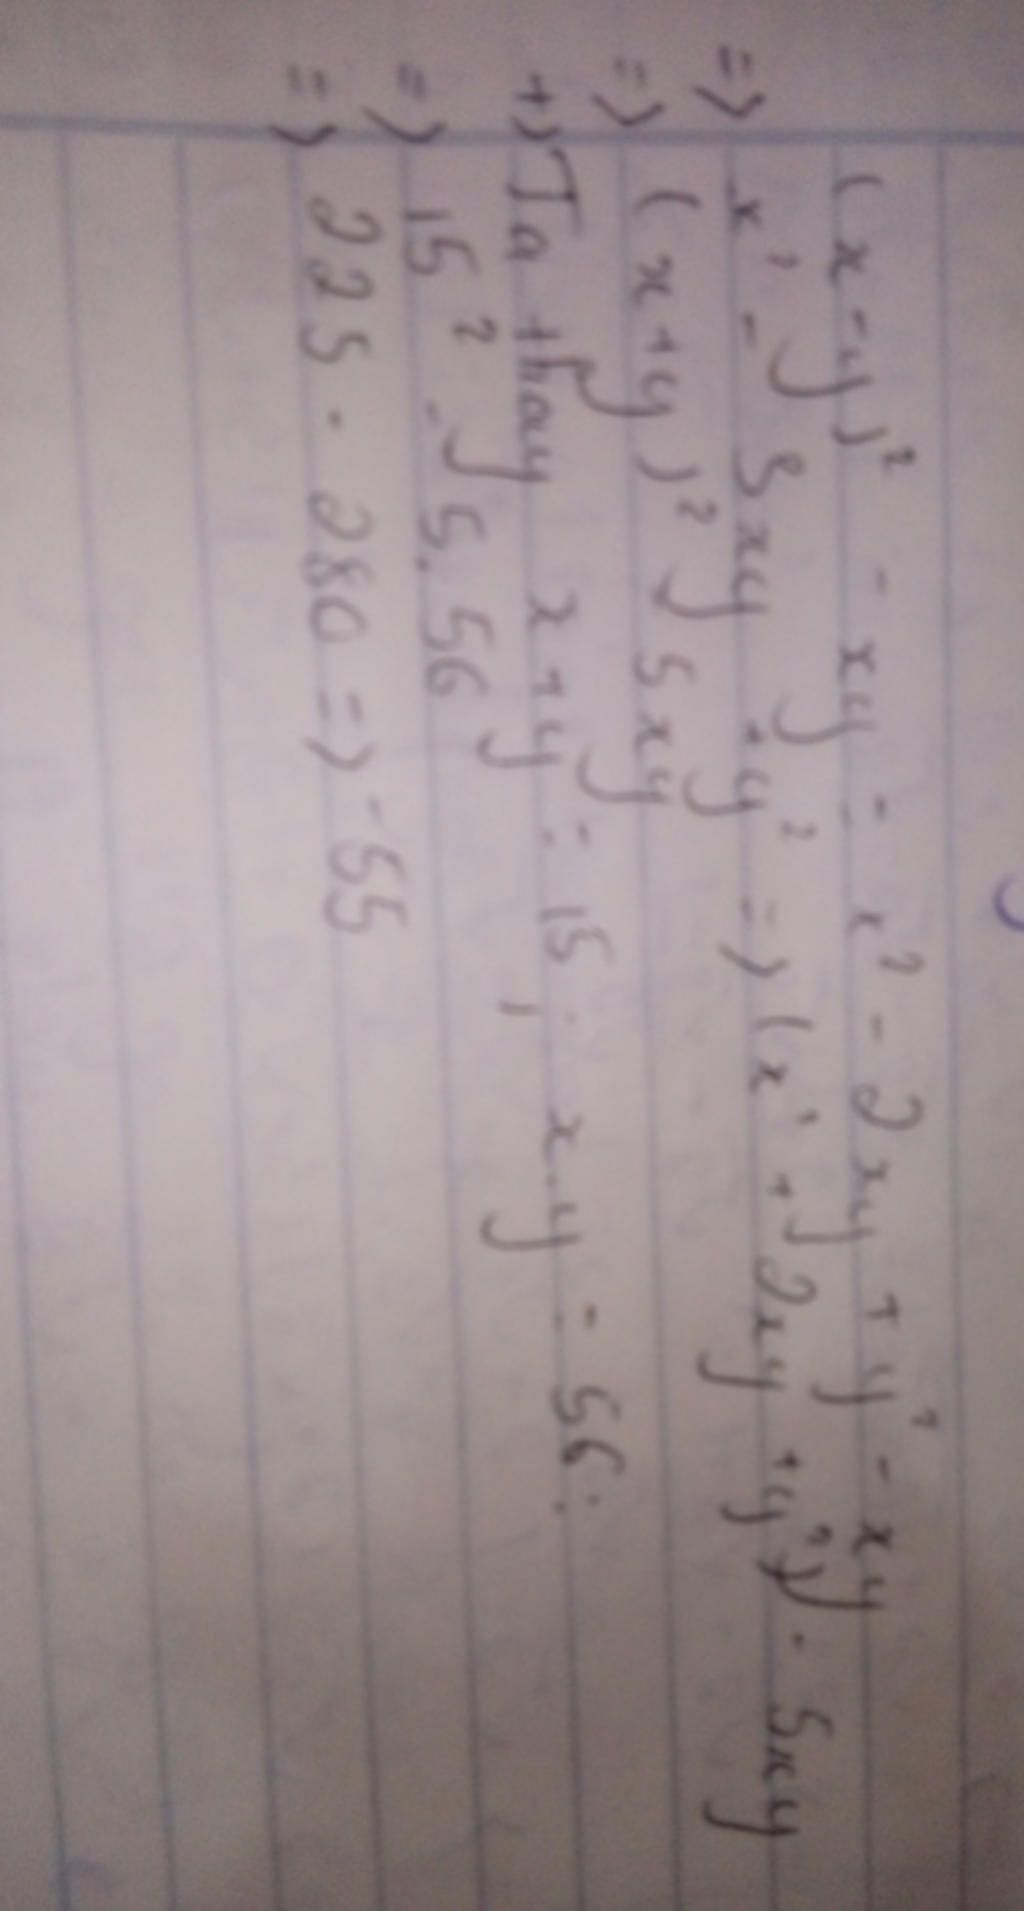 (x-y)² - xy = x² - 2xy + y² - xy
=> x² - 3xy + y² => (x² + 2xy + y²) - 5xy
=> (x+y)² 5xy
+) Ta thay x+y = 15; x.y = 56:
=> 15² - 5.56
=> 225 - 280 => -55